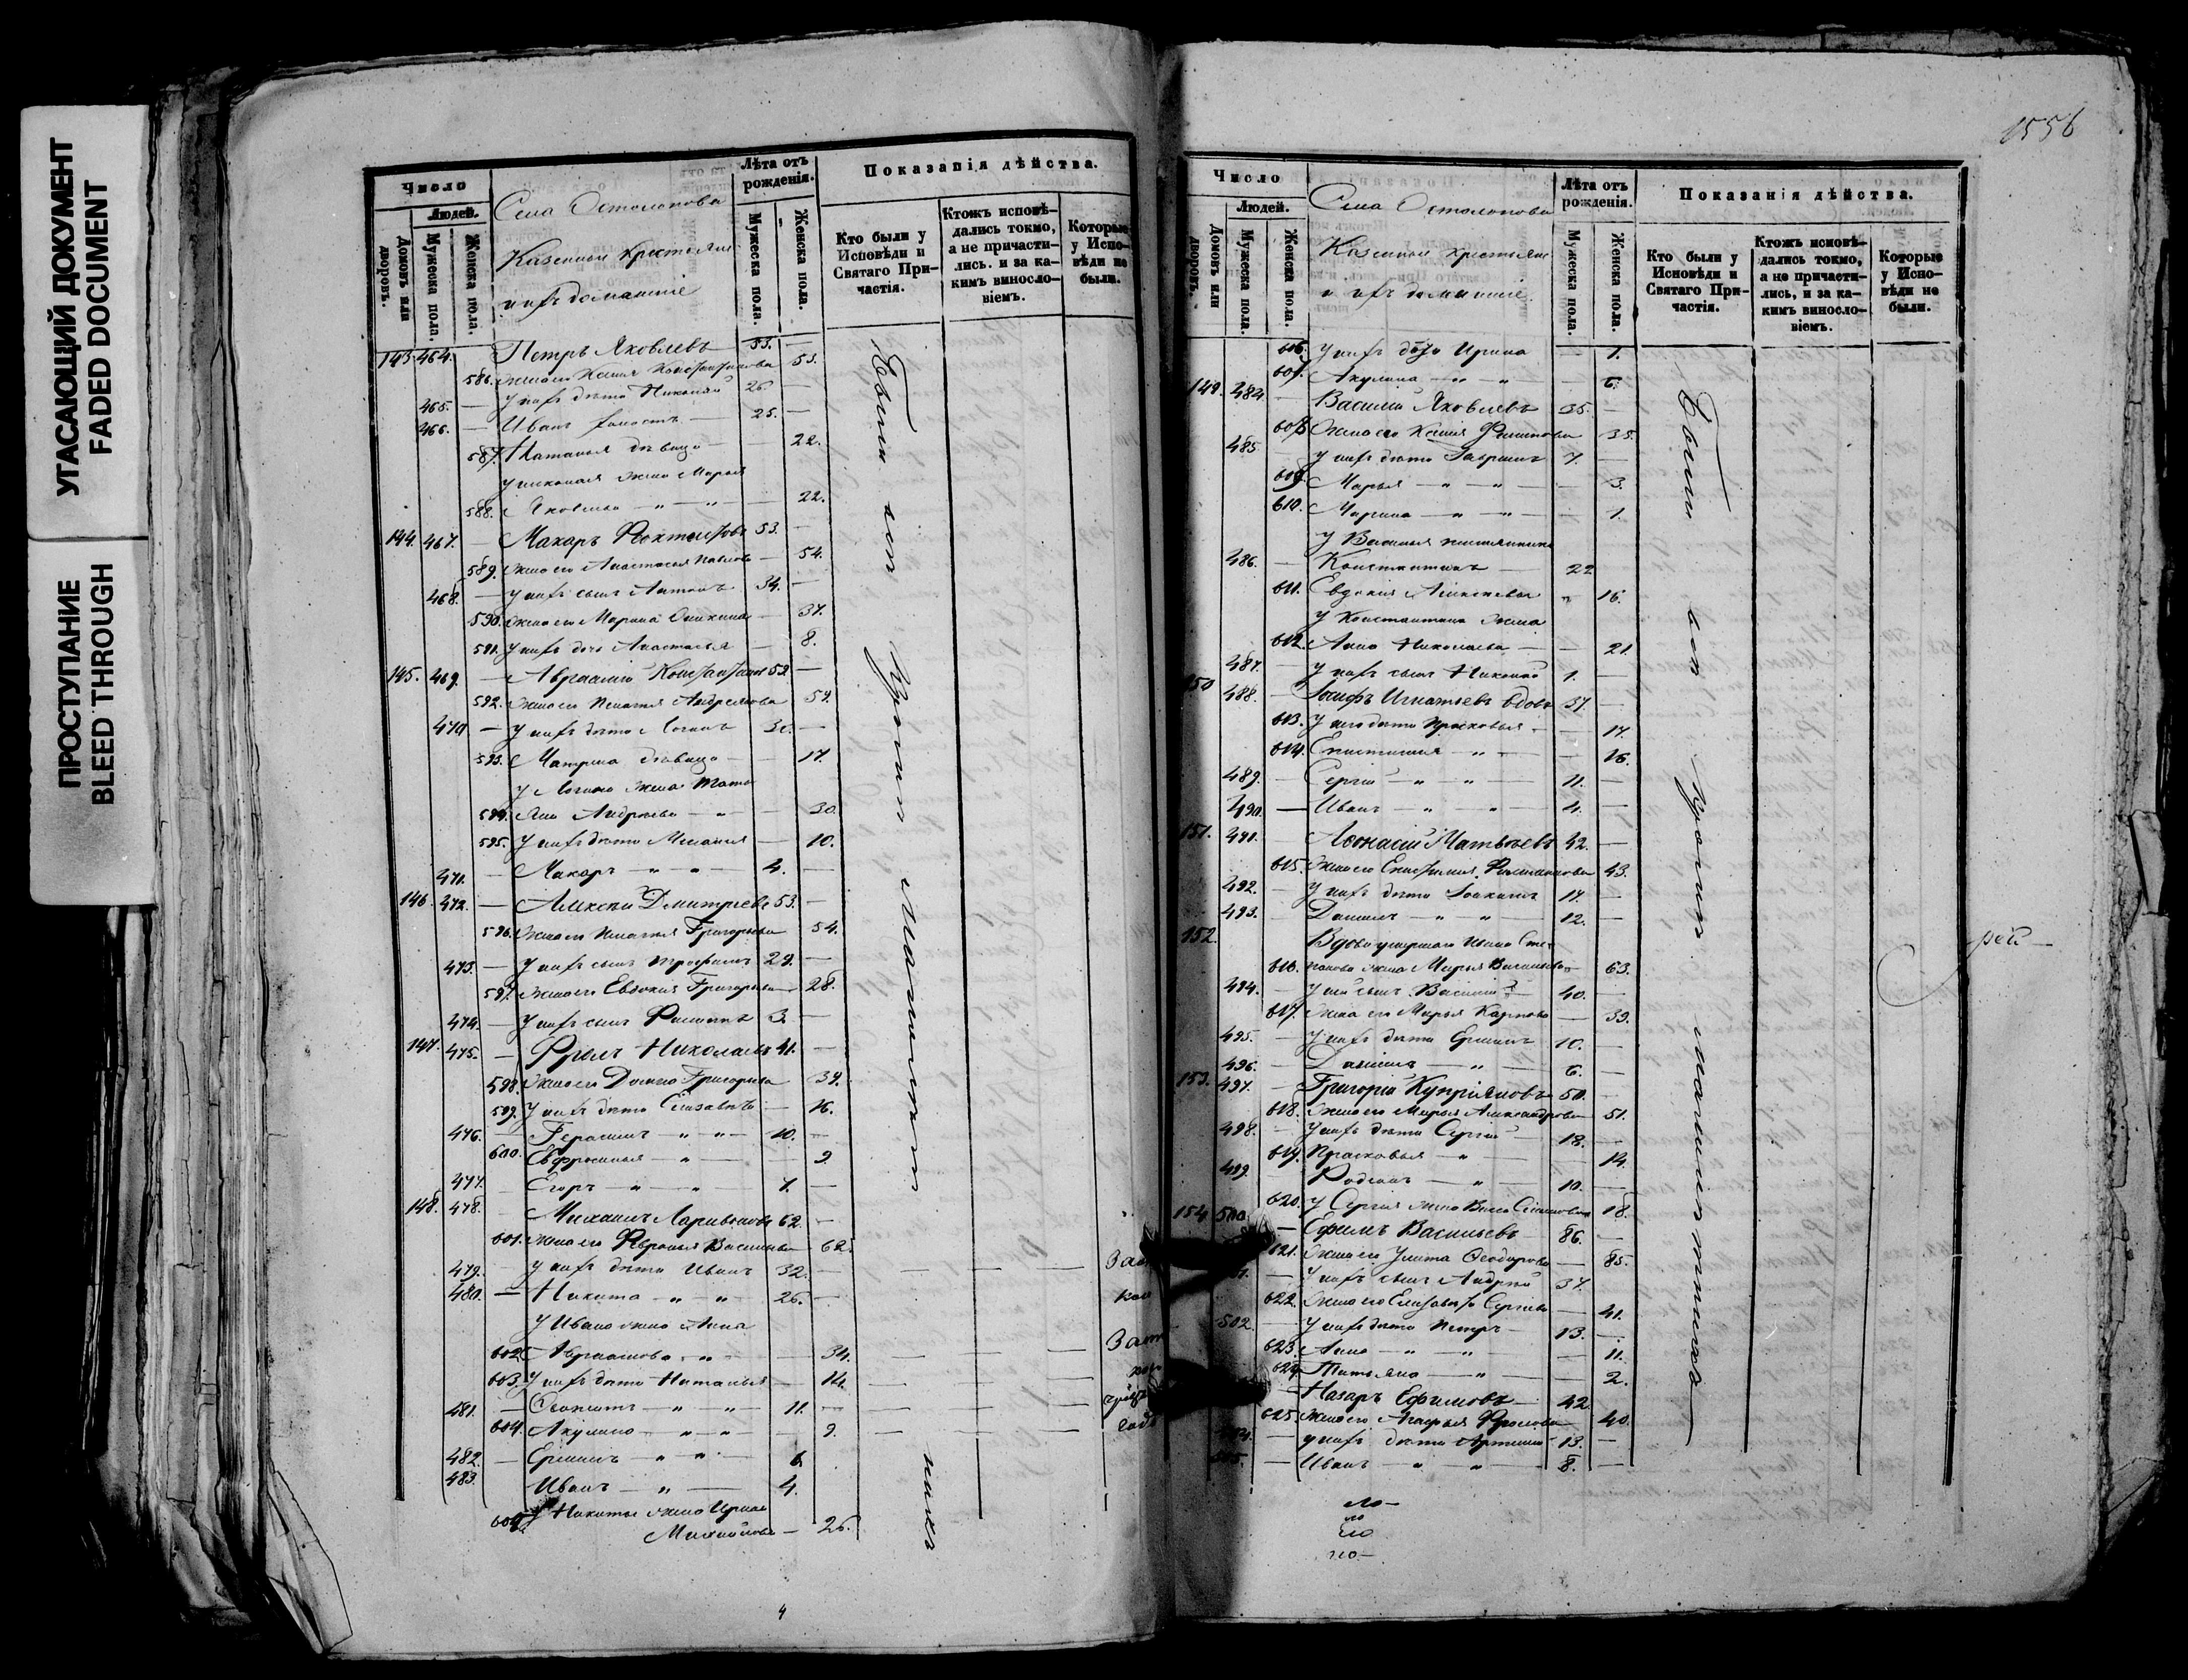 УГАСАЮЩИЙ ДОКУМЕНТ
FADED DOCUMENT
ПРОСТУПАНИЕ
BLEED THROUGH
Число
Людей.
Домовъ или дворовъ.
Мужеска пола.
Женска пола.
Села Остолопова
Казенныи крестьяне
и ихъ домашніе
Лѣта отъ рожденія.
Мужеска пола.
Женска пола.
Показанія дѣйства.
Кто были у Исповѣди и Святаго Причастія.
Ктожъ исповѣдались токмо, а не причастились. и за какимъ винословіемъ.
Которые у Исповѣди не были.
143. 464. Петръ Яковлевъ 53.
586. Жена его Ксенія Константинова 53.
465. У нихъ дѣти Николай 26
466. Иванъ холостъ 25.
587. Наталья дѣвица 22.
У Николая жена Марья
588. Яковлева 22.
144. 467. Макаръ 53.
589. Жена его Анастасья Павлова 54.
468. У нихъ сынъ Антонъ 34.
590. Жена его Марина 37.
591. У нихъ дочь Анастасья 8.
145. 469. Авраамій Константиновъ 53.
592. Жена его Пелагея Андреянова 54.
470 У нихъ дѣти Логинъ 30.
593. Матрена дѣвица 17.
У Логина жена Татья
594. на Андреева 30.
595. У нихъ дѣти Меланья 10.
471. Макаръ 4.
146. 472. Алексѣй Дмитріевъ 53.
596. Жена его Пелагея Григорьева 54.
473. У нихъ сынъ Трофимъ 29.
597. Жена его Евдокия Григорьева 28.
474. У нихъ сынъ Филиппъ 3.
147. 475. Фролъ Николаевъ 41.
598. Жена его Домна Григорьева 39.
599. У нихъ дѣти Елизавета 16.
476. Герасимъ 10.
600. Евфросинья 9.
477. Егоръ 7.
148. 478. Михаилъ Ларивоновъ 62.
601. Жена его Февронья Васильева 62.
479. У нихъ дѣти Иванъ 32.
480. Никита 26.
У Ивана жена Анна
602. Авраамова 34.
603. У нихъ дѣти Наталья 14.
481. Феоктистъ 11.
604. Акулина 9.
482. Ермилъ 6.
483. Иванъ 4.
605. У Никиты жена Ирина
Михайлова 26.
Были вси
4
1556
Число
Людей.
Домовъ или дворовъ.
Мужеска пола.
Женска пола.
Села Остолопова
Казенныи крестьяне
и ихъ домашніе
Лѣта отъ рожденія.
Мужеска пола.
Женска пола.
Показанія дѣйства.
Кто были у Исповѣди и Святаго Причастія.
Ктожъ исповѣдались токмо, а не причастились, и за какимъ винословіемъ.
Которые у Исповѣди не были.
606. У нихъ дочь Ирина 1.
607. Акулина 6.
149. 484. Василій Яковлевъ 35.
608. Жена его Ксенія Филипова 35.
485. У нихъ дѣти Гаврилъ 7.
609. Марья 3.
610. Марина 1.
У Василья племянники
486. Константинъ 22
611. Евдокия Алексеева 16.
У Константина жена
612. Анна Николаева 21.
487. У нихъ сынъ Николай 1.
150 488. Іосифъ Игнатьевъ вдовъ 37.
613. У него дѣти Прасковья 17.
614. Епистимия 16.
489. Сергій 11.
490. Иванъ 4.
151. 491. Афонасій Матвѣевъ 42.
615. Жена его 43.
492. У нихъ дѣти Іоакимъ 17.
493. Данилъ 12.
152. Вдова умершаго Ивана Сте-
616. панова жена Марья Васильева 63.
494. У ней сынъ Василій 40.
617. Жена его Марья Карпова 39.
495. У нихъ дѣти Ермилъ 10.
496. Данилъ 6.
153. 497. Григорій Купріяновъ 50.
618. Жена его Марья Александрова 51.
498. У нихъ дѣти Сергій 18.
619. Прасковья 14.
499. Родіонъ 10.
620. У Сергія жена 18.
154 500. Ефимъ Васильевъ 86.
621. Жена его Улита Феодорова 85.
У нихъ сынъ Андрей 37.
622. Жена его Елизавета Сергіева 41.
502. У нихъ дѣти Петръ 13.
623. Анна 11.
624. Татьяна 2.
Назаръ Ефимовъ 42
625. Жена его Агафья Фролова 40.
У нихъ дѣти Артемій 13.
Иванъ 8.
Были вси